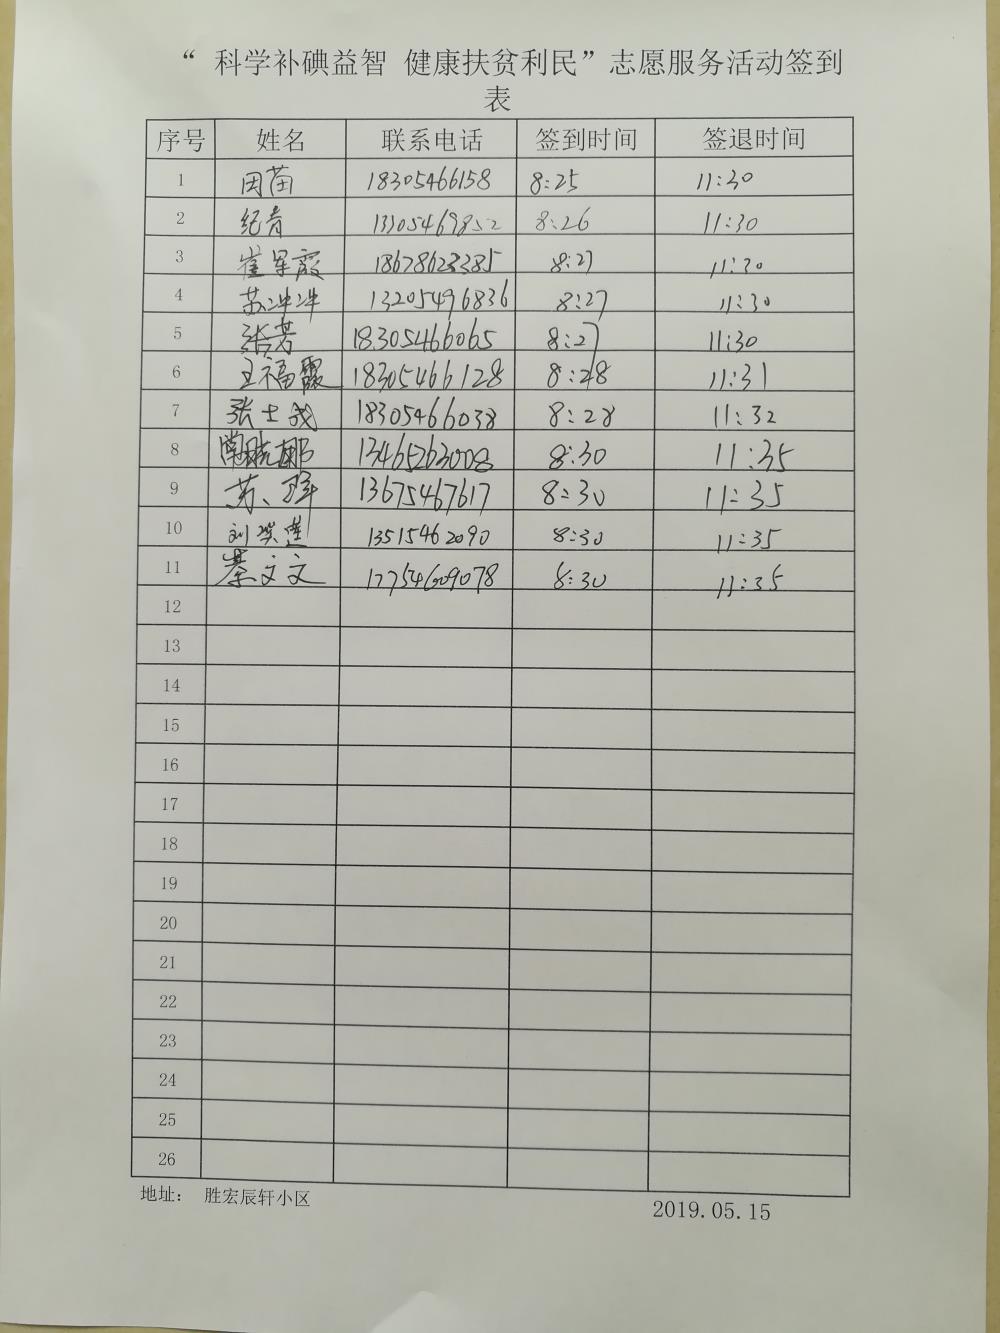 “ 科学补碘益智 健康扶贫利民”志愿服务活动签到
表
序号 姓名 联系电话 签到时间 签退时间
1 因苗 18305466158 8:25 11:30
2 纪青 13305469852 8:26 11:30
3 崔军霞 18678628385 8:27 11:30
4 苏冲冲 13205496836 8:27 11:30
5 张芳 18305466065 8:27 11:30
6 王福霞 18305466128 8:28 11:31
7 张士成 18305466038 8:28 11:32
8 13465263008 8:30 11:35
9 苏 13675467617 8:30 11:35
10 刘 莲 13515462090 8:30 11:35
11 綦文文 17754609078 8:30 11:35
12
13
14
15
16
17
18
19
20
21
22
23
24
25
26
地址： 胜宏辰轩小区
2019.05.15